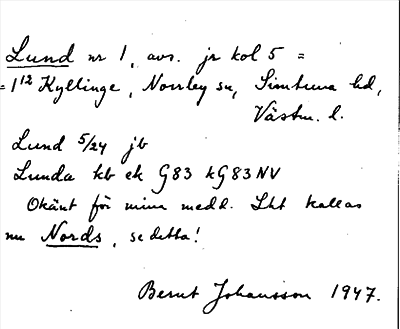 Lund nr 1, avs. jr kol 5 =
= 1¹² Kyllinge, Norrby sn, Simtuna hd,
Västm. l.
Lund 5/24 jb
Lunda kb ek G83 kG83NV
Okänt för mina medd. Lht kallas
nu Nords, se detta!
Bernt Johansson 1947.